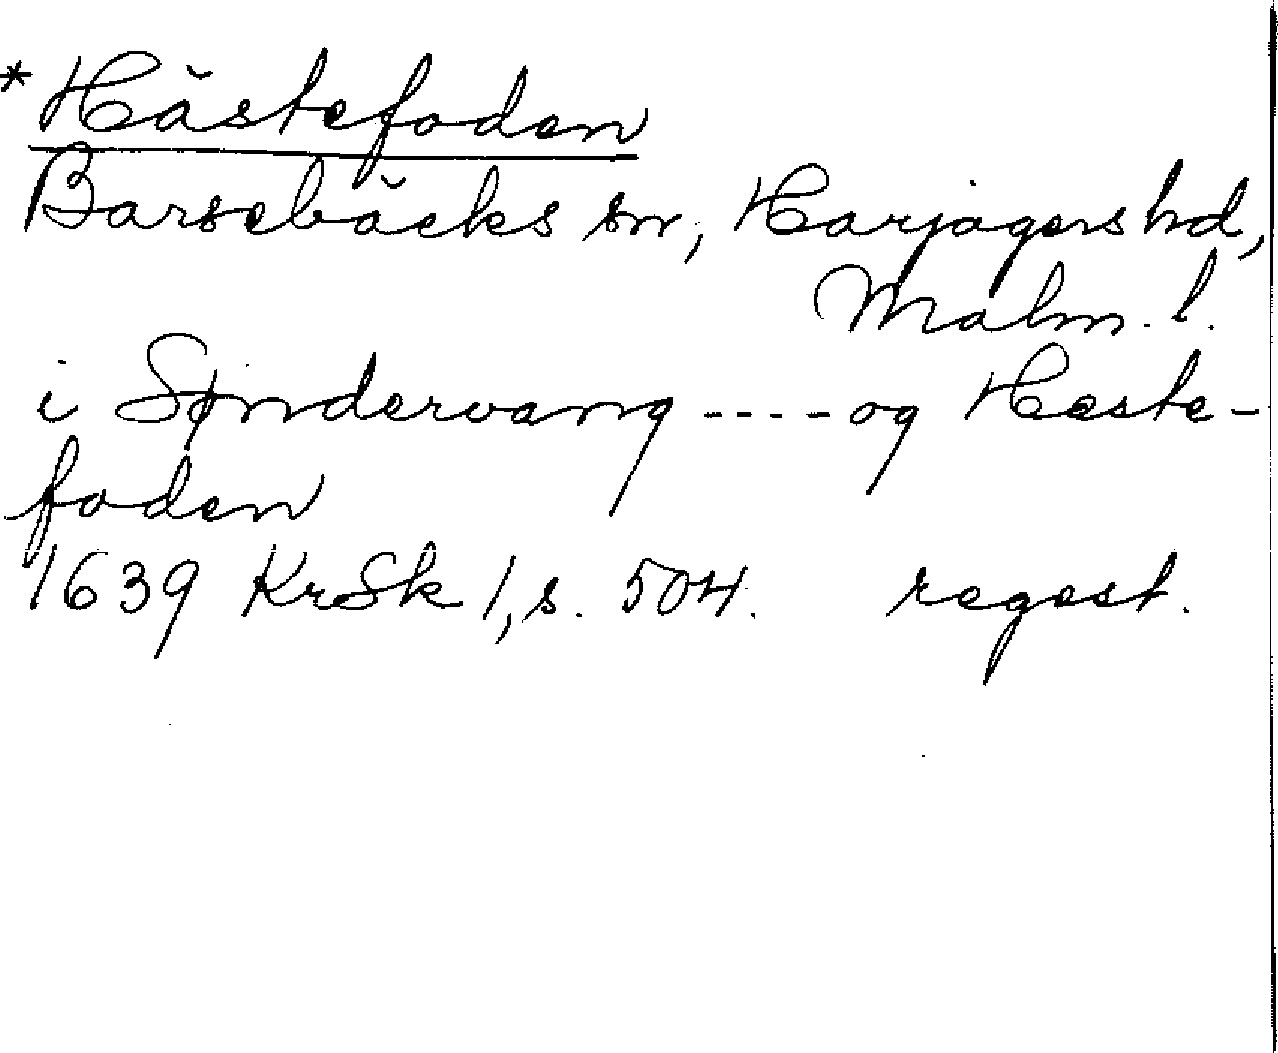 *Hästefoden
Barsebäcks sn, Harjagers hd,
Malm. l.
i Søndervang ---- og Heste-
foden
1639 KrSk 1, s. 504. regest.